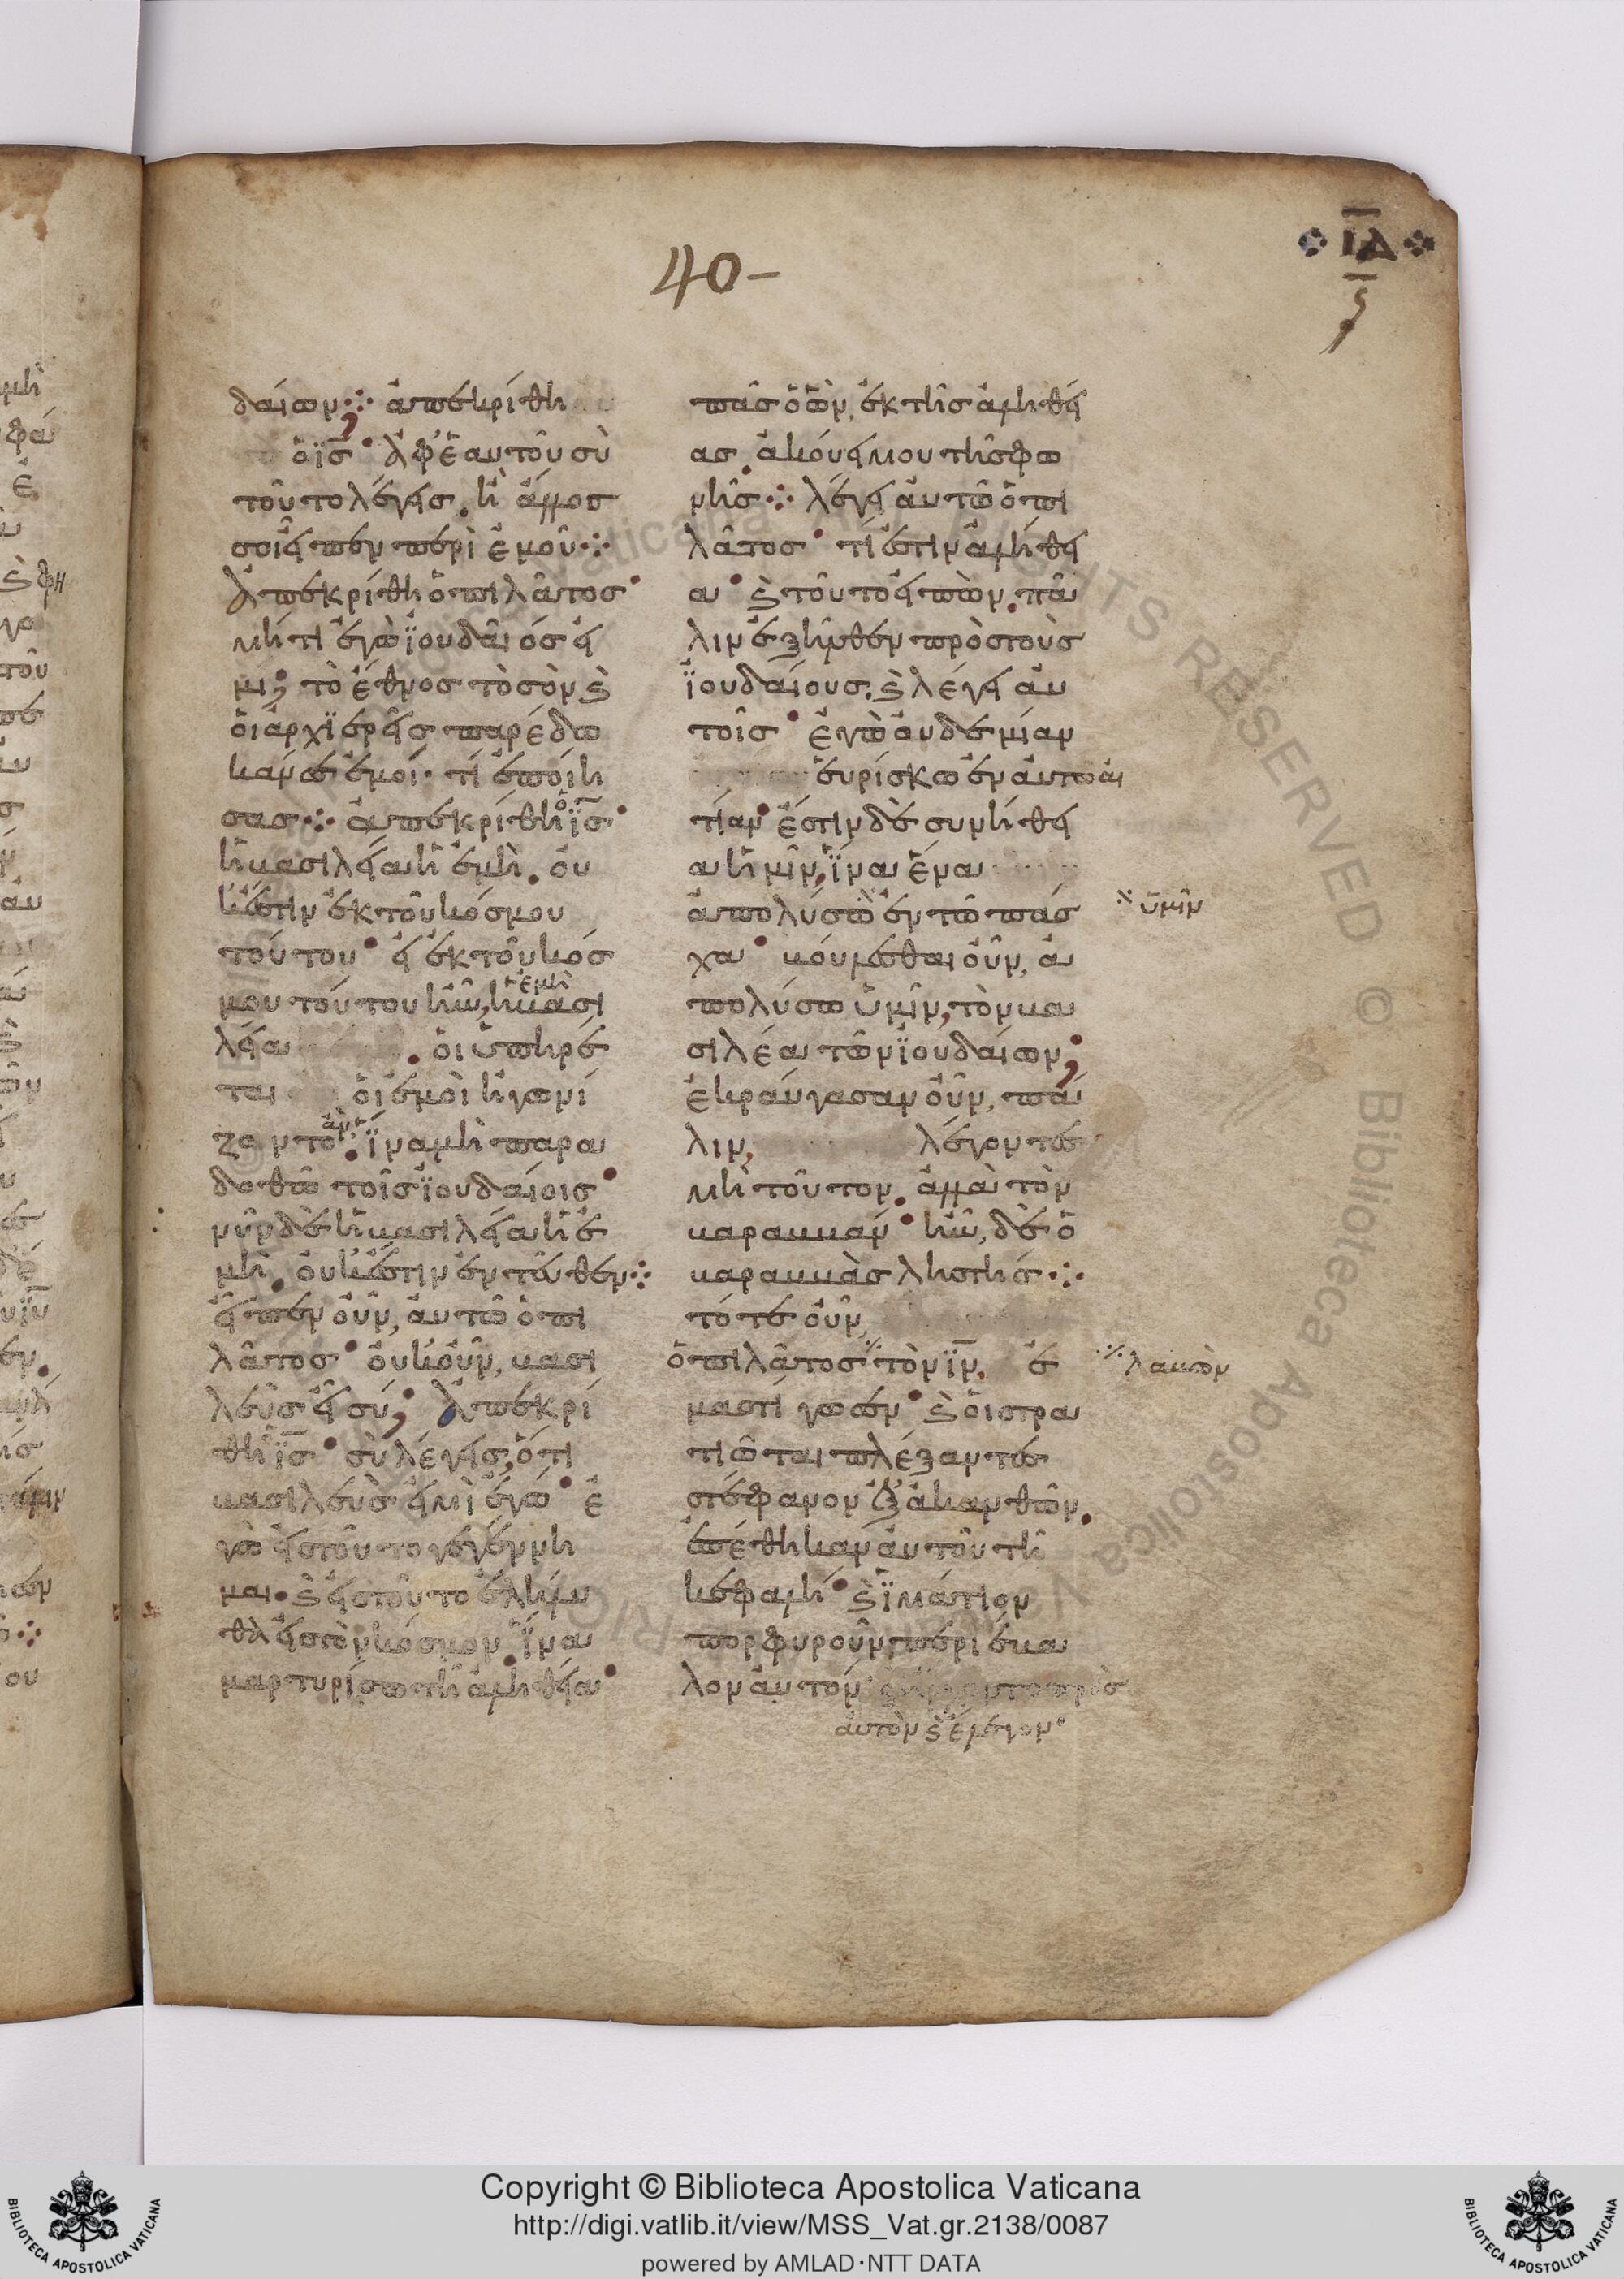 40-
ΙΔ
δαίων· ἀπεκρίθη
ὁ ϊς· ἀφ' ἑαυτοῦ σὺ
τοῦτο λέγεις. ἢ ἄλλος
σοι εἶπεν περὶ ἐμοῦ·
ἀπεκρίθη ὁ πιλᾶτος·
μή τι ἐγὼ ϊουδαῖός εἰ
μι; τὸ ἔθνος τὸ σὸν ϗ
οἱ ἀρχϊερεῖς παρέδω
κάν σε ἐμοί· τί ἐποίη
σας· ἀπεκρίθη ὁ ϊς·
ἡ βασιλεία ἡ ἐμὴ. οὐ
κ' ἔστιν ἐκ τοῦ κόσμου
τούτου· εἰ ἐκ τοῦ κόσ
μου τούτου ἦν, ἡ βασι
ἐμὴ
λεία. οἱ ὑπηρέ
ται οἱ ἐμοὶ ἠγωνί
ζοντο ἂν. ἵνα μὴ παρα
δοθῶ τοῖς ϊουδαίοις·
νῦν δὲ ἡ βασιλεία ἡ ἐ
μὴ. οὐκ' ἔστιν ἐντεῦθεν·
εἶπεν οὖν, αὐτῶ ὁ πι
λᾶτος· οὐκ' οὖν, βασι
λεὺς εἶ σύ; ἀπεκρί
θη ϊς· σὺ λέγεις, ὅτι
βασιλεὺς εἰμὶ ἐγώ· ἐ
γὼ εἰς τοῦτο γεγέννη
μαι. ϗ εἰς τοῦτο ἐλήλυ
θα εἰς τὸν κόσμον, ἵνα
μαρτυρίσω τῆ ἀληθεία·
πᾶς ὁ ὢν, ἐκ τῆς ἀληθεί
ας. ἀκούει μου τῆς φω
νῆς· λέγει αὐτῶ ὁ πι
λᾶτος· τί ἐστιν ἀλήθει
α· ϗ τοῦτο εἰπὼν. πά
λιν ἐξῆλθεν πρὸς τοὺς
ϊουδαίους. ϗ λέγει αὐ
τοῖς· ἐγὼ οὐδὲ μίαν
εὑρίσκω ἐν αὐτῶ αἰ
τίαν· ἔστιν δὲ συνήθει
α ἡμῖν, ἵνα ἕνα
ἀπολύσω ἐν τῶ πάσ
χα· βούλεσθαι οὖν, ἀ
πολύσω ὑμῖν, τὸν βα
σιλέα τῶν ϊουδαίων;
ἐκραύγασαν οὖν, πά
λιν, λέγοντες
μὴ τοῦτον. ἀλλὰ τὸν
βαραββάν· ἦν, δὲ ὁ
βαραββὰς λῃστής·
τότε οὖν,
ὁ πιλᾶτος τὸν ϊν, ἐ
μαστίγωσεν· ϗ οἱ στρα
τιῶται πλέξαντες
στέφανον ἐξ ἀκανθῶν.
ἐπέθηκαν αὐτοῦ τῆ
κεφαλή· ϗ ϊμάτιον
πορφυροῦν, περιέβα
λον αὐτόν· ϗ ἤρχοντο πρὸς
αὐτὸν ϗ ἔλεγον·
ὑμῖν
λαβὼν
Copyright © Biblioteca Apostolica Vaticana
http://digi.vatlib.it/view/MSS_Vat.gr.2138/0087
powered by AMLAD·NTT DATA
BIBLIOTECA APOSTOLICA VATICANA
BIBLIOTECA APOSTOLICA VATICANA